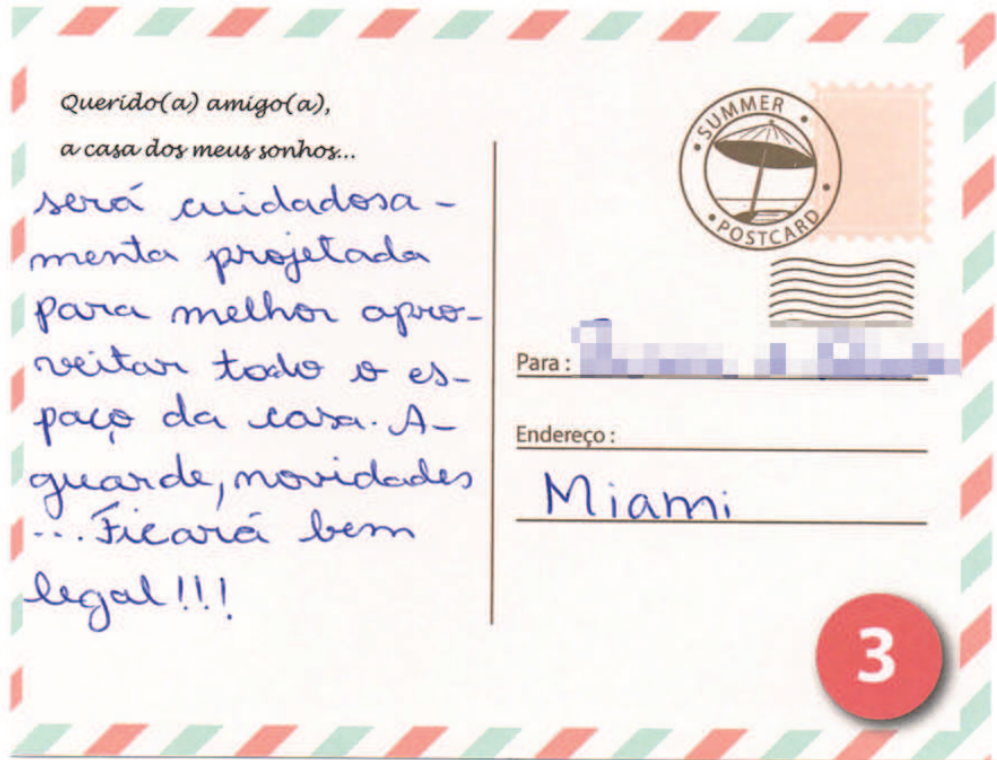 Querido(a) amigo(a),
a casa dos meus sonhos...
será cuidadosa-
menta projetada
para melhor apro-
veitar todo o es-
paço da casa. A-
guarde, novidades
...Ficará bem
legal!!!
SUMMER
POSTCARD
Para:
Endereço:
Miami
3